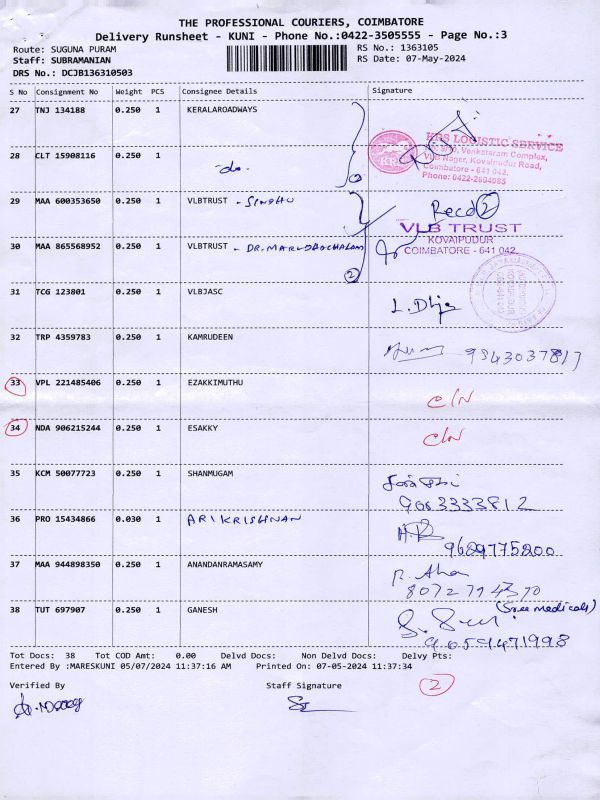 THE PROFESSIONAL COURIERS, COIMBATORE
Delivery Runsheet - KUNI - Phone No.:0422-3505555 - Page No.:3
Route: SUGUNA PURAM RS No.: 1363105
Staff: SUBRAMANIAN RS Date: 07-May-2024
DRS No.: DCJB136310503
S No Consignment No Weight PCS Consignee Details Signature
27 TNJ 134188 0.250 1 KERALAROADWAYS
KRS LOGISTIC SERVICE
Venkataram Complex,
28 CLT 15908116 0.250 1 -do-
VLB Nagar, Kovaipudur Road,
Coimbatore - 641 042.
Phone: 0422-2604085
29 MAA 600353650 0.250 1 VLBTRUST - SINDHU Recd 2
VLB TRUST
KOVAIPUDUR
30 MAA 865568952 0.250 1 VLBTRUST - DR.MARUDHACHALAM COIMBATORE - 641 042.
2
31 TCG 123801 0.250 1 VLBJASC
32 TRP 4359783 0.250 1 KAMRUDEEN 9543037817
33 VPL 221485406 0.250 1 EZAKKIMUTHU C/N
34 NDA 906215244 0.250 1 ESAKKY C/N
35 KCM 50077723 0.250 1 SHANMUGAM
9063333812
36 PRO 15434866 0.030 1 ARIKRISHNAN
9629775200
37 MAA 944898350 0.250 1 ANANDANRAMASAMY
8072794370
38 TUT 697907 0.250 1 GANESH (Sree medicals)
9059471998
Tot Docs: 38 Tot COD Amt: 0.00 Delvd Docs: Non Delvd Docs: Delvy Pts:
Entered By :MARESKUNI 05/07/2024 11:37:16 AM Printed On: 07-05-2024 11:37:34
Verified By Staff Signature 2